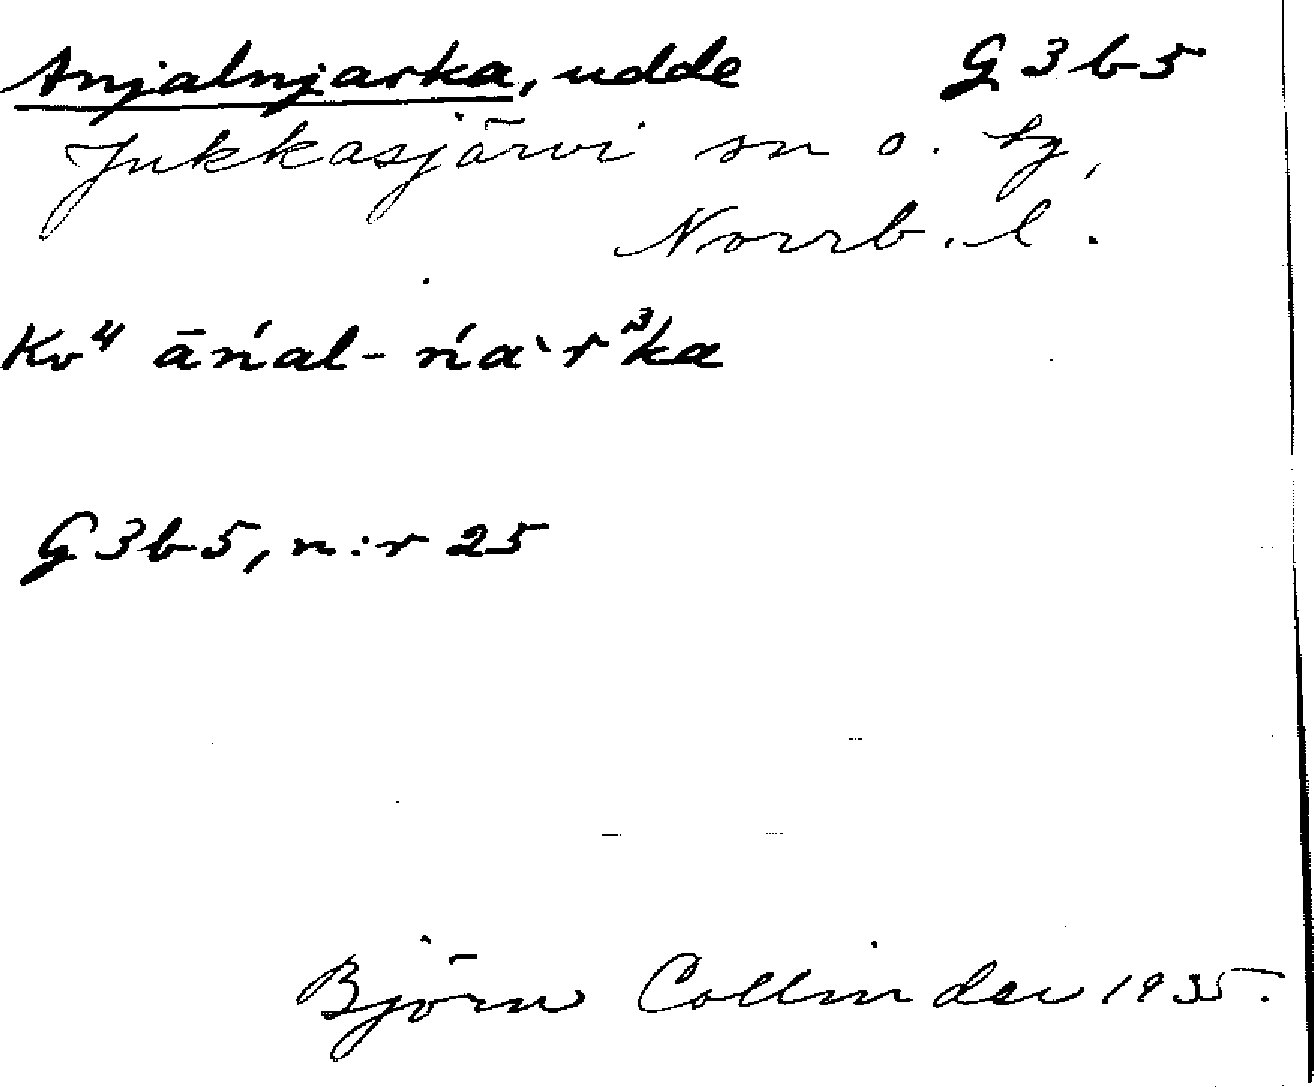 Anjalnjarka, udde G3b5
Jukkasjärvi sn o. tg,
Norrb. l.
Kv⁴ āńal-ńa`r³ka
G3b5, n:r 25
Björn Collinder 1935.